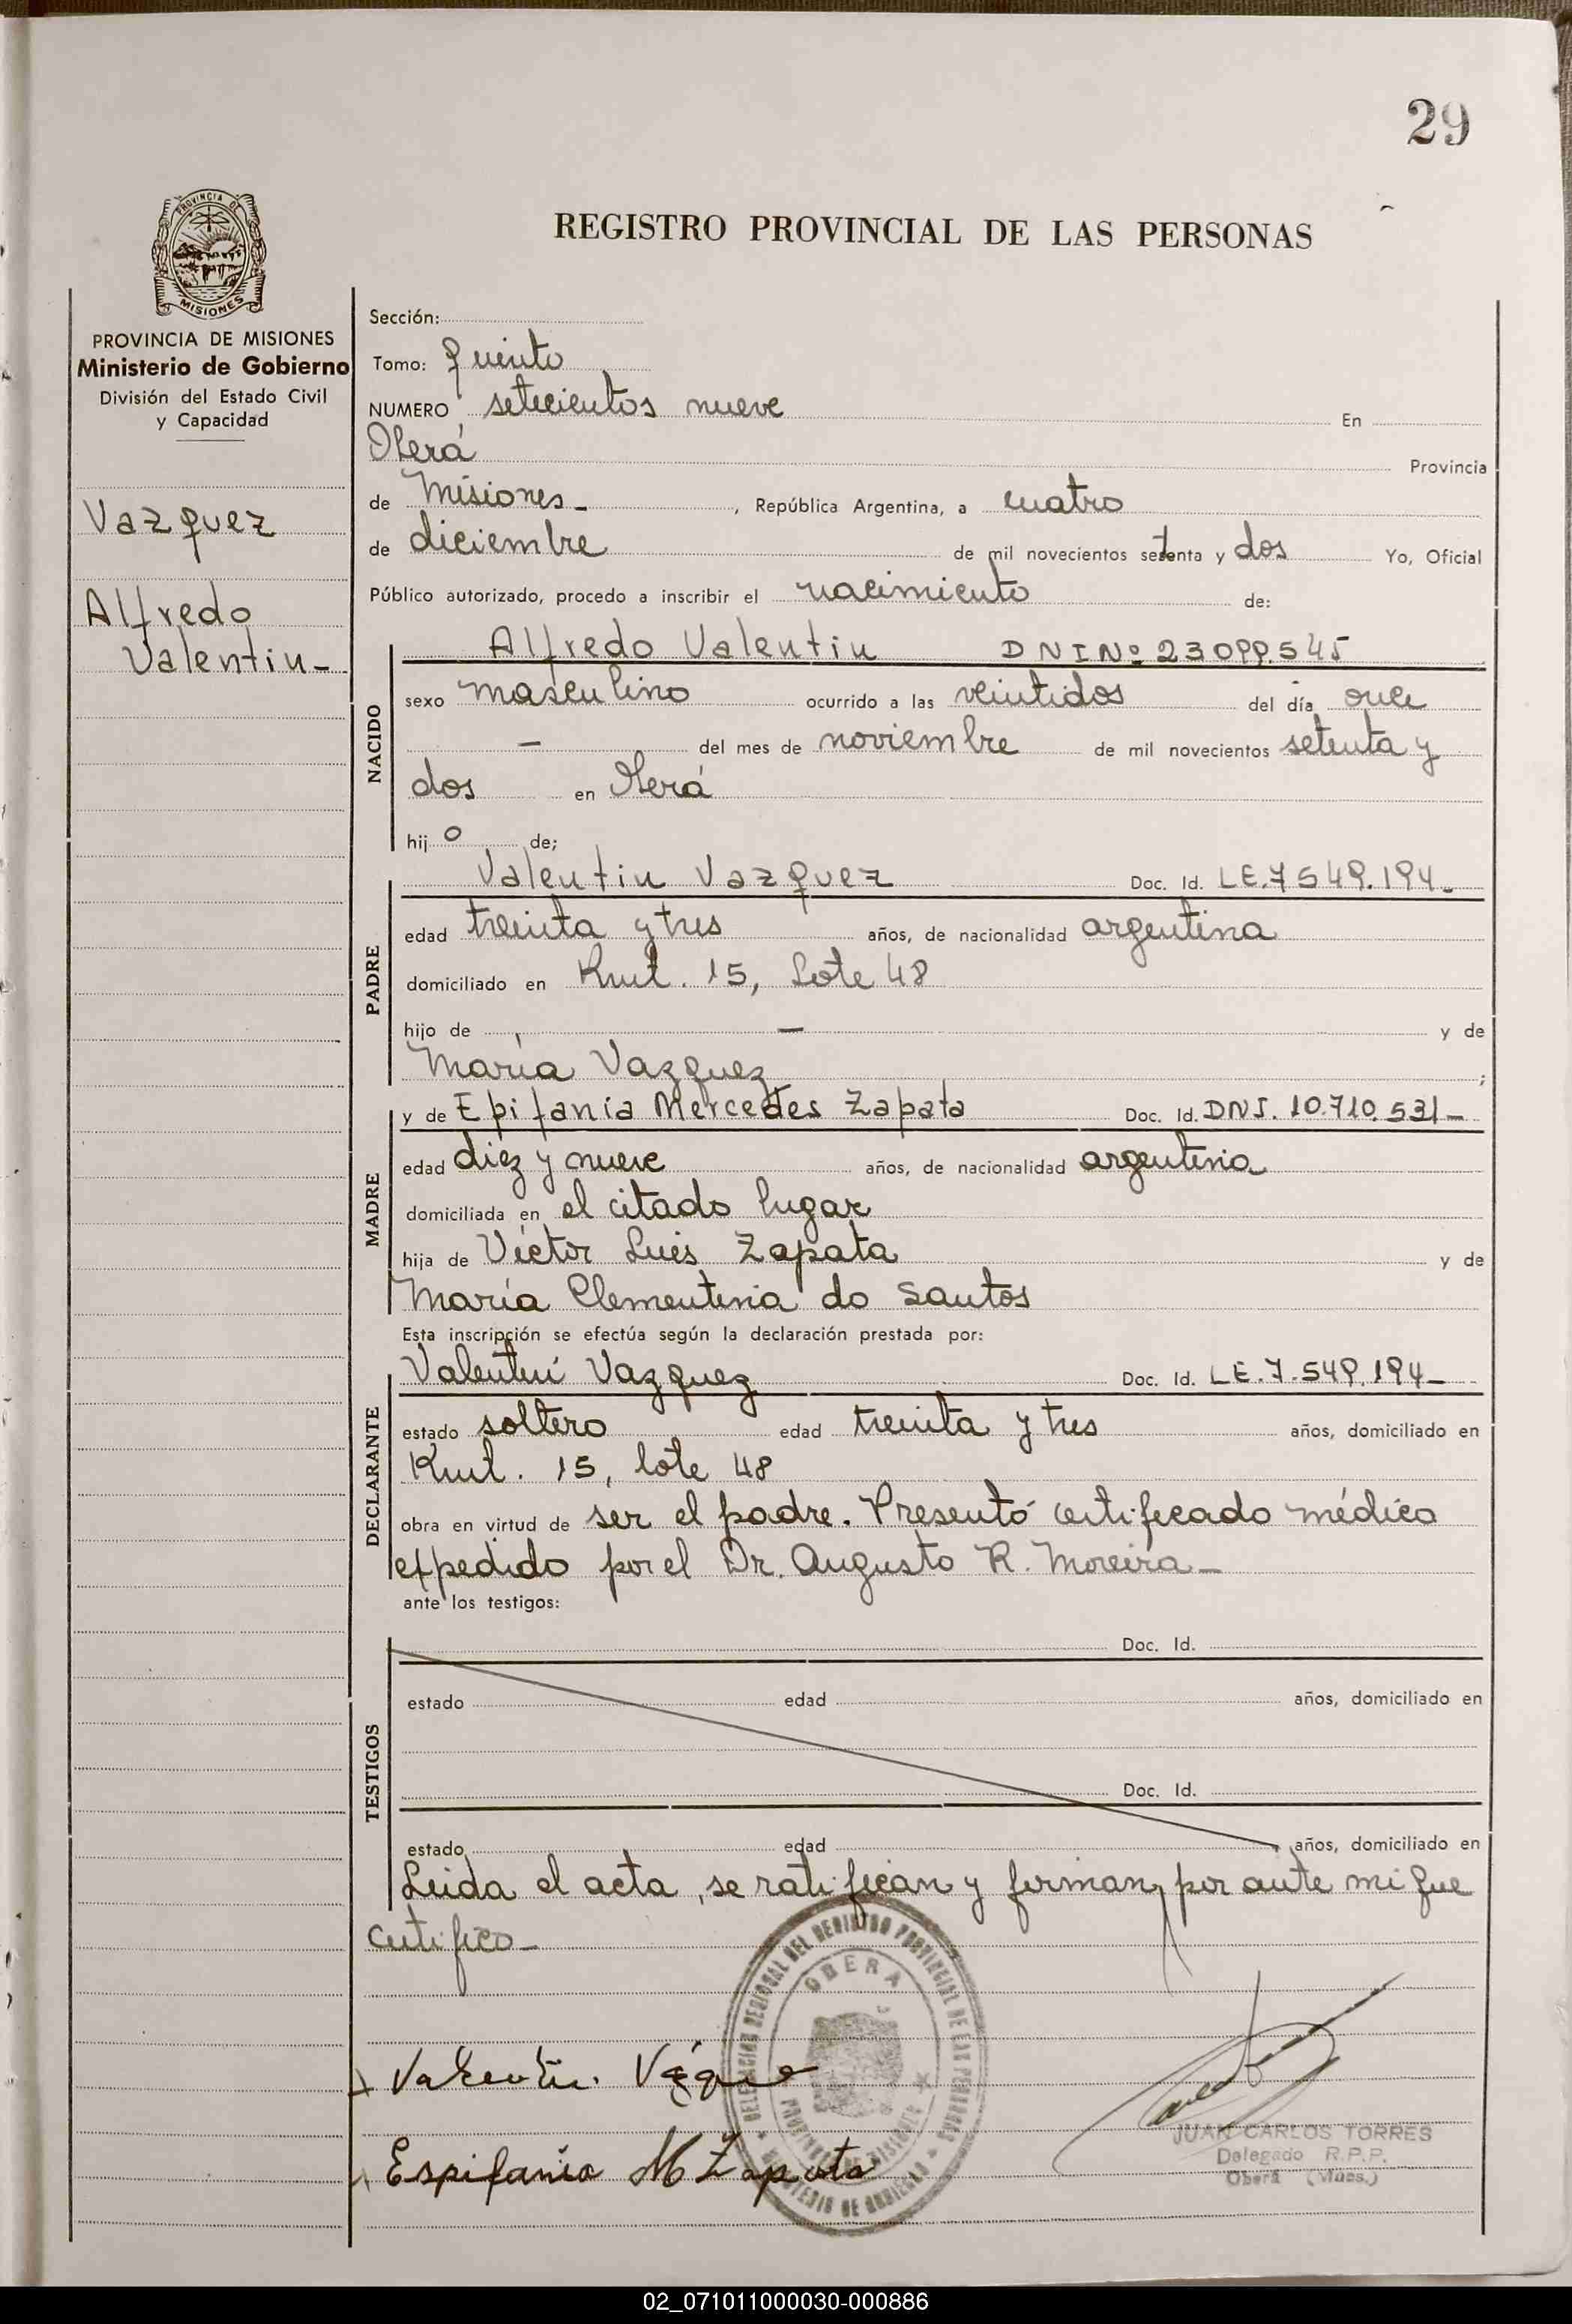 29
PROVINCIA DE
MISIONES
REGISTRO PROVINCIAL DE LAS PERSONAS
PROVINCIA DE MISIONES
Ministerio de Gobierno
División del Estado Civil
y Capacidad
Vazquez
Alfredo
Valentin-
Sección:
Tomo: quinto
NUMERO setecientos nueve En
Oberá Provincia
de Misiones-, República Argentina, a cuatro
de diciembre de mil novecientos setenta y dos Yo, Oficial
Público autorizado, procedo a inscribir el nacimiento de:
NACIDO
Alfredo Valentin DNI Nº 23099.545
sexo masculino ocurrido a las veintidos del día once
- del mes de noviembre de mil novecientos setenta y
dos en Oberá
hijo de;
PADRE
Valentin Vazquez Doc. Id. LE.7549.194-
edad treinta y tres años, de nacionalidad argentina
domiciliado en Kmt. 15, Lote 48
hijo de - y de
María Vazquez;
MADRE
y de Epifanía Mercedes Zapata Doc. Id. DNI. 10.710.531-
edad diez y nueve años, de nacionalidad argentina
domiciliada en el citado lugar
hija de Víctor Luis Zapata y de
María Clementina do Santos
Esta inscripción se efectúa según la declaración prestada por:
DECLARANTE
Valentín Vazquez Doc. Id. LE.7.549.194-
estado soltero edad treinta y tres años, domiciliado en
Kmt. 15, lote 48
obra en virtud de ser el padre. Presentó certificado médico
expedido por el Dr. Augusto R. Moreira-
ante los testigos:
TESTIGOS
Doc. Id.
estado edad años, domiciliado en
Doc. Id.
estado edad años, domiciliado en
Leida el acta, se ratifican y firman, por ante mi que
certifico-
DELEGACION REGIONAL DEL REGISTRO PROVINCIAL DE LAS PERSONAS
OBERA
PROVINCIA DE MISIONES
MINISTERIO DE GOBIERNO
Valentin
Espifania M Zapata
JUAN CARLOS TORRES
Delegado R.P.P.
Oberá (Mnes.)
02_071011000030-000886